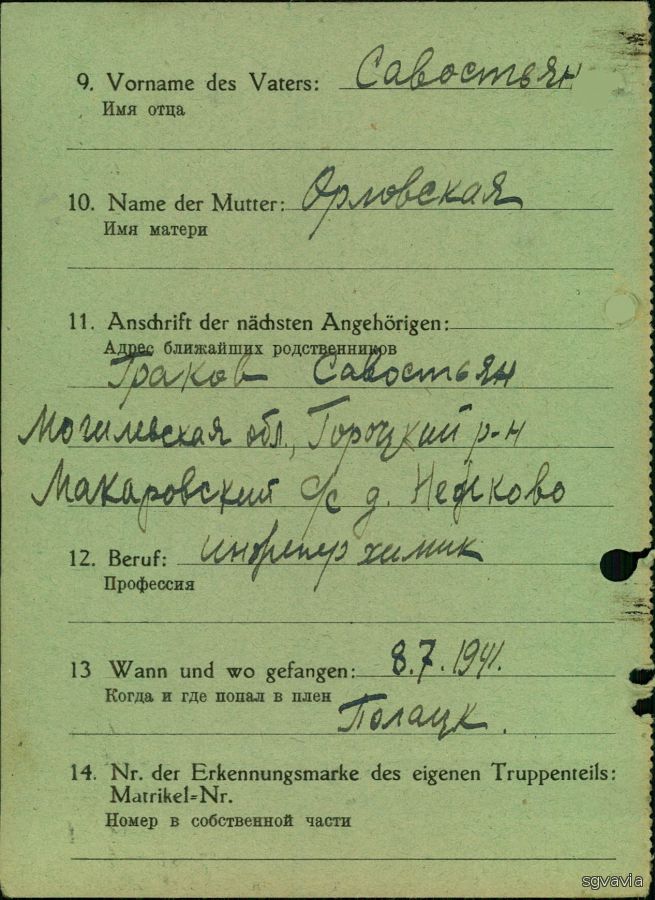 9. Vorname des Vaters: Савостьян
Имя отца
10. Name der Mutter: Орловская
Имя матери
11. Anschrift der nächsten Angehörigen:
Адрес ближайших родственников
Граков Савостьян
Могилевская обл., Горецкий р-н
Макаровский с/с д.
12. Beruf: инженер химик
Профессия
13 Wann und wo gefangen: 8.7.1941.
Когда и где попал в плен
Полацк.
14. Nr. der Erkennungsmarke des eigenen Truppenteils:
Matrikel=Nr.
Номер в собственной части
sgvavia